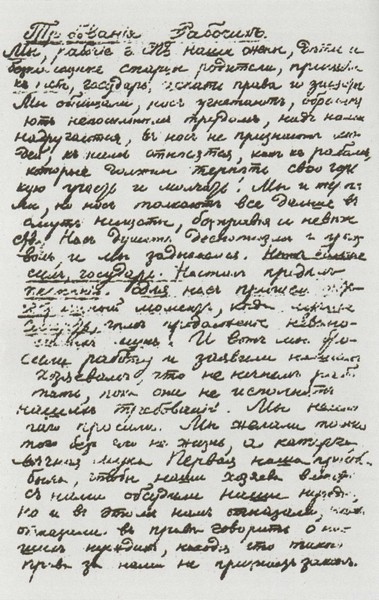 Требованія Рабочихъ.
Мы, рабочіе г. СПб. наши жены, дѣти и
безпомощные старцы родители, пришли
къ тебѣ, государь, искати правды и защиты
Мы обнищали, насъ угнетаютъ, обременя
ютъ непосильнымъ трудомъ, надъ нами
надругаются, въ насъ не признаютъ лю
дей, къ намъ относятся, какъ къ рабамъ,
которые должны терпѣть свою горь
кую участь и молчать. Мы и терпѣ
ли, но насъ толкаютъ все дальше въ
омутъ нищеты, безправія и невѣж
ства. Насъ душитъ деспотизмъ и произ
волъ и мы задыхаемся. Нѣтъ больше
силъ, государь. Насталъ предѣлъ
терпѣнію. Для насъ пришелъ
моментъ, когда
продолженіе невыно
мукъ. И вотъ мы бро
сили работу и заявили нашимъ
хозяевамъ, что не начнемъ рабо
тать, пока они не исполнятъ
нашихъ требованій. Мы мало
чего просили. Мы желали только
того безъ чего не жизнь, а каторга
вѣчная мука Первая наша просьба
была, чтобы наши хозяева вмѣстѣ
съ нами обсудили наши нужды
Но и въ этомъ намъ отказали,
отказали въ правѣ говорить о на
шихъ нуждахъ, находя что такого
права за нами не признаетъ законъ.